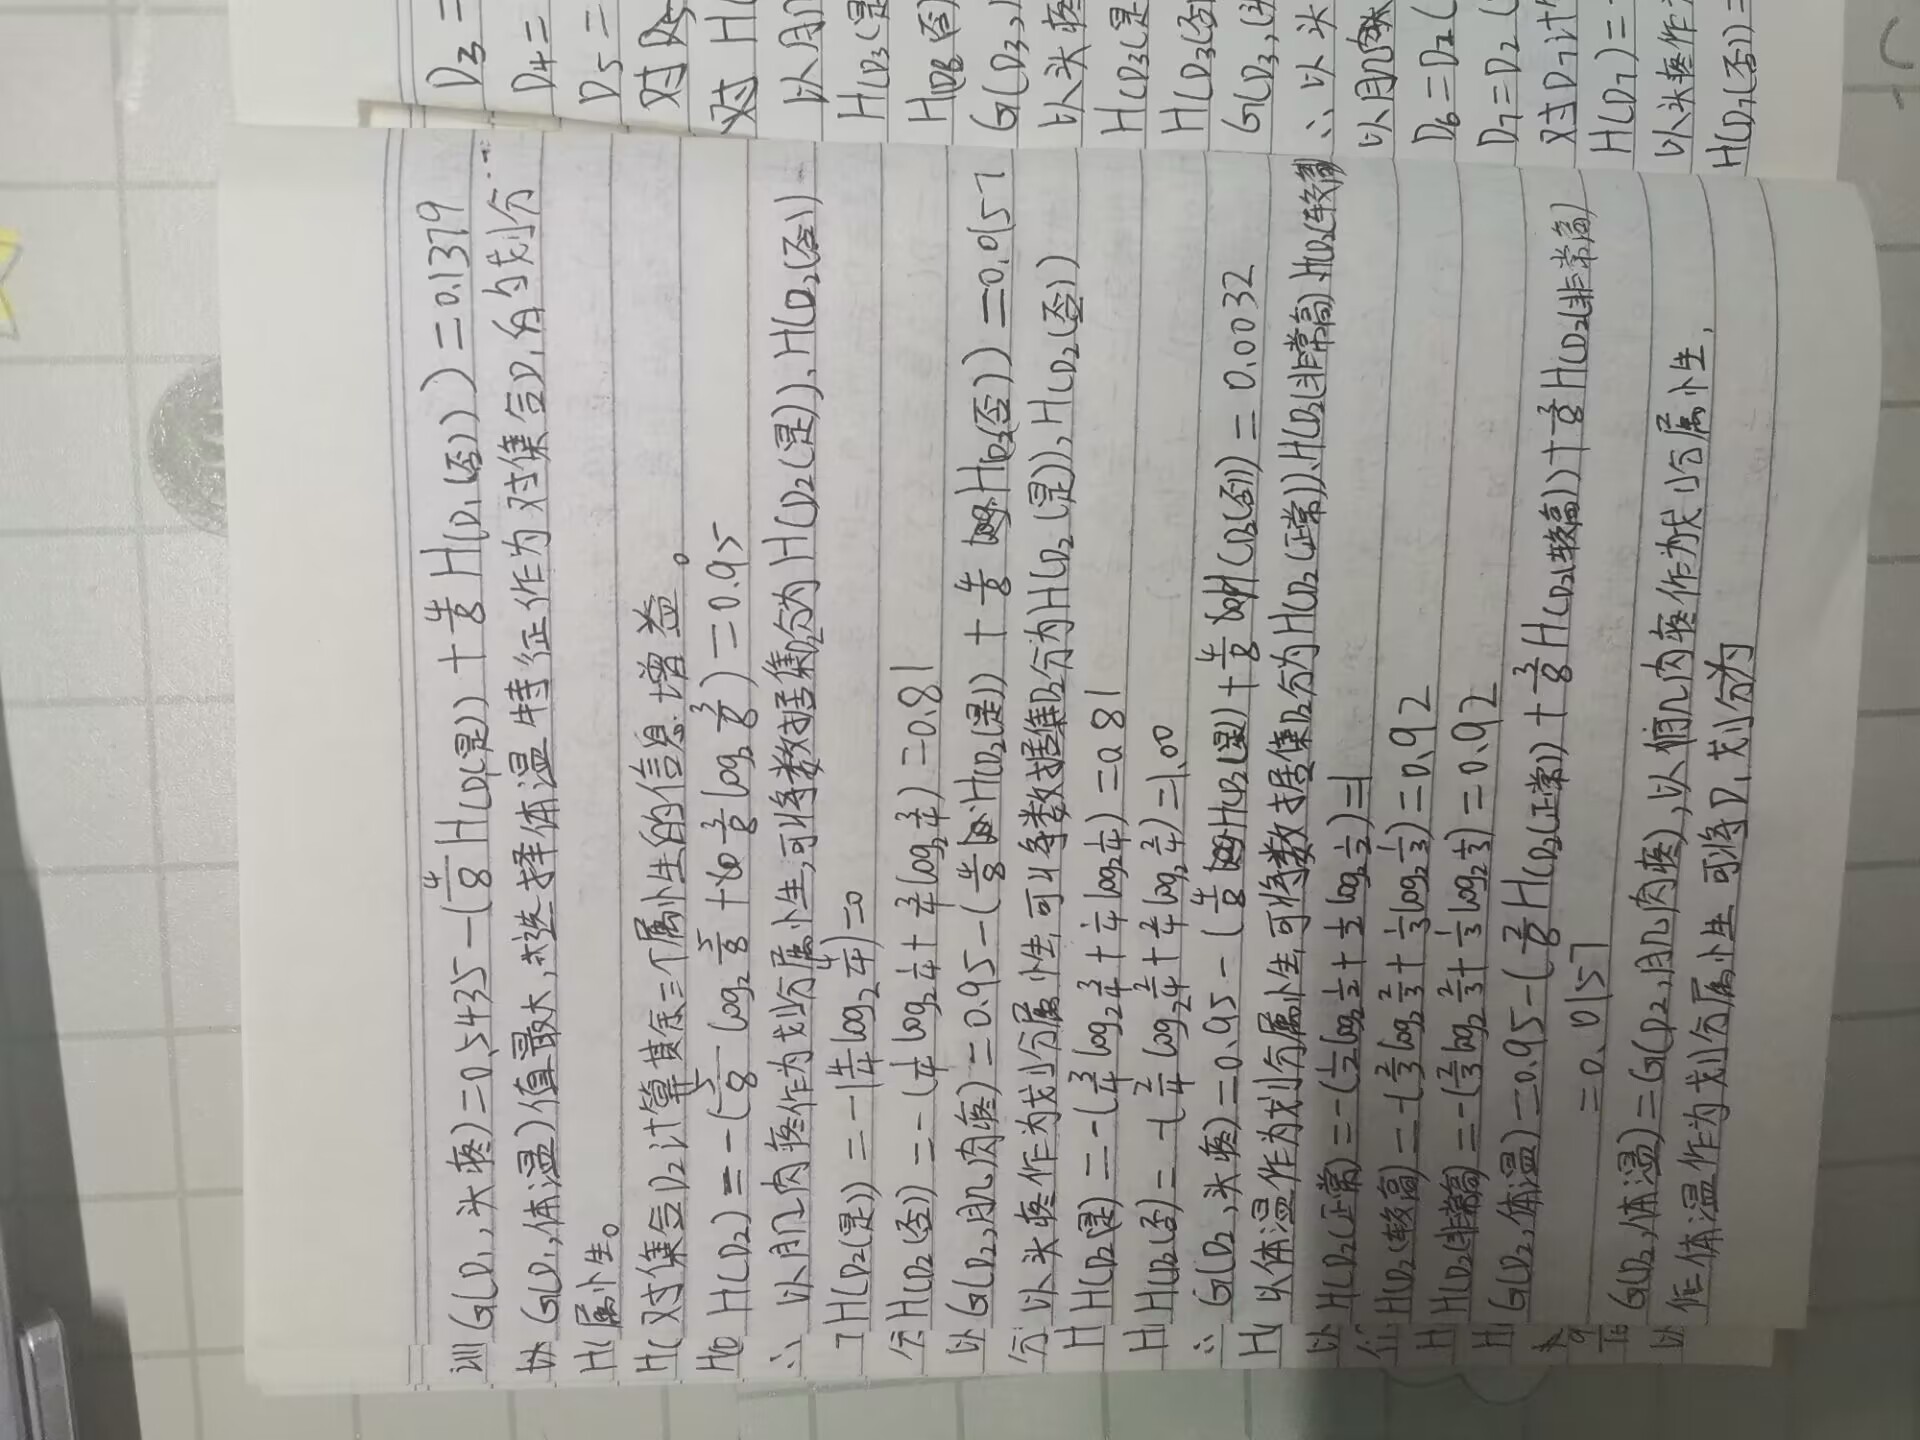 G(D₁,头疼)=0.5435-(4/8H(D₁(是))+4/8H(D₁(否)))=0.1379
G(D₁,体温)值最大,故选择体温特征作为对集合D₁的划分
属性。
对集合D₂计算其余三个属性的信息增益。
H(D₂)=-(5/8log₂5/8+3/8log₂3/8)=0.95
以肌肉疼作为划分属性,可将数据集D₂分为H(D₂(是)),H(D₂(否))
H(D₂(是))=-(4/4log₂4/4)=0
H(D₂(否))=-(1/4log₂1/4+3/4log₂3/4)=0.81
G(D₂,肌肉疼)=0.95-(4/8H(D₂(是))+4/8H(D₂(否)))=0.0157
以头疼作为划分属性,可以将数据集D₂分为H(D₂(是)),H(D₂(否))
H(D₂(是))=-(3/4log₂3/4+1/4log₂1/4)=0.81
H(D₂(否))=-(2/4log₂2/4+2/4log₂2/4)=1.00
G(D₂,头疼)=0.95-(4/8H(D₂(是))+4/8H(D₂(否)))=0.0032
以体温作为划分属性,可将数据集D₂分为H(D₂(正常)),H(D₂(非常高)),H(D₂(较高))
H(D₂(正常))=-(1/2log₂1/2+1/2log₂1/2)=1
H(D₂(较高))=-(2/3log₂2/3+1/3log₂1/3)=0.92
H(D₂(非常高))=-(2/3log₂2/3+1/3log₂1/3)=0.92
G(D₂,体温)=0.95-(2/8H(D₂(正常))+3/8H(D₂(较高))+3/8H(D₂(非常高))
=0.0157
G(D₂,体温)=G(D₂,肌肉疼),以肌肉疼作为划分属性.
作体温作为划分属性,可将D₁划分为
D₃=
D₄=
D₅=
对D₃
对H(
以肌
H(D₃(是
H(D₃(否)
G(D₃,
以头疼
H(D₃(是
H(D₃(否
G(D₃,(头
∴以头
以肌
D₆=D₂(
D₇=D₂(
对D₇计
H(D₇)=
以头疼作
H(D₇(否))=